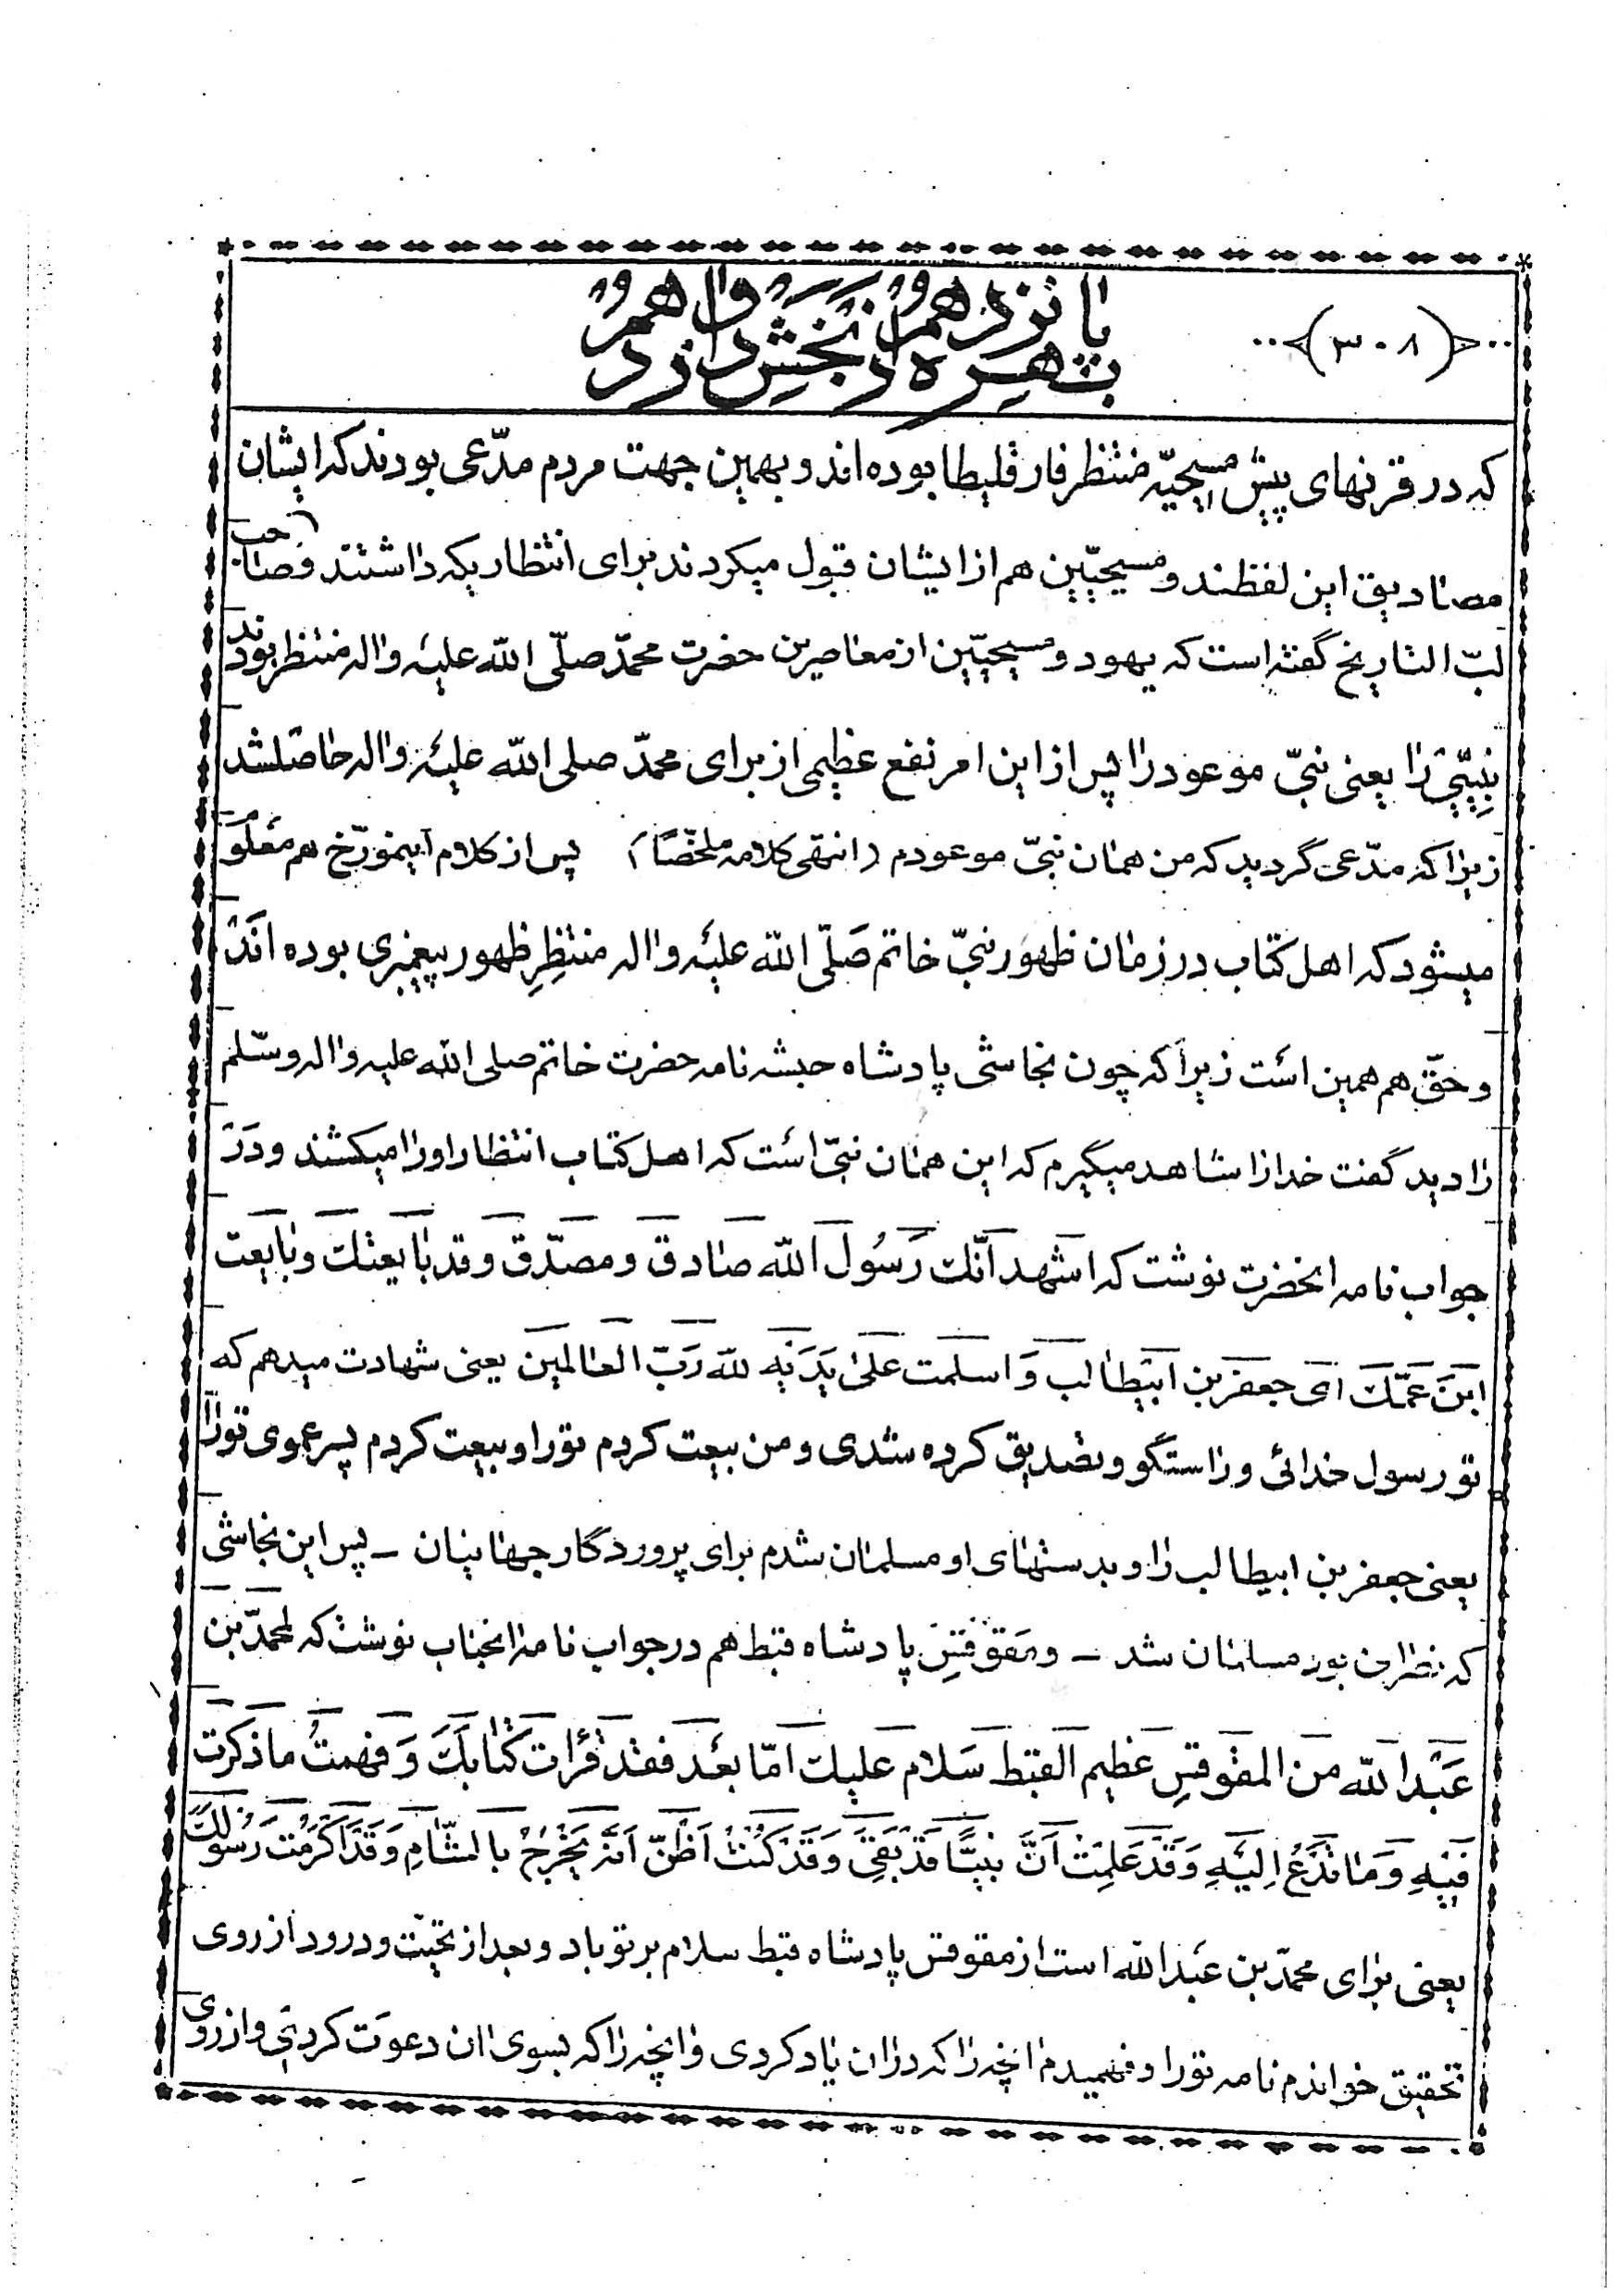 (٣٠٨)
پانزدهم از بخش دوازدهم
بهره
که در قرنهای پیش مسیحیّه منتظر فارقلیطا بوده اند و بهمین جهت مردم مدّعی بودند که ایشان
مصادیق این لفظند و مسیحیّین هم از ایشان قبول میکردند برای انتظاریکه داشتند و صاحب
لبّ التاریخ گفته است که یهود و مسیحیّین از معاصرین حضرت محمّد صلّی الله علیه واله منتظر بودند
نبیّی را یعنی نبیّ موعود را پس از این امر نفع عظیمی از برای محمّد صلی الله علیه واله حاصلشد
زیرا که مدّعی گردید که من همان نبیّ موعودم (انتهی کلامه ملخّصًا) پس از کلام اینمورّخ هم معلو
میشود که اهل کتاب در زمان ظهور نبیّ خاتم صَلّی الله علیه واله منتظِرِ ظهور پیغمبری بوده اند
و حقّ هم همین است زیرا که چون نجاشی پادشاه حبشه نامه حضرت خاتم صلی الله علیه واله وسلّم
را دید گفت خدا را شاهد میگیرم که این همان نبیّ است که اهل کتاب انتظار او را میکشند و در
جواب نامه انحضرت نوشت که اشهد انّک رَسُول الله صادق و مصدّق و قد بایعتک و بایعت
ابن عمّک ای جعفر بن ابیطالب وَ اسلمت علی یدیه لله رَبّ العالمین یعنی شهادت میدهم که
تو رسول خدائی و راستگو و تصدیق کرده شدی و من بیعت کردم تو را و بیعت کردم پسر عموی تو را
یعنی جعفر بن ابیطالب را و بدستهای او مسلمان شدم برای پروردگار جهانیان – پس این نجاشی
که نصرانی بود مسلمان شد – و مقوقس پادشاه قبط هم در جواب نامه انجناب نوشت که لمحمّد بن
عَبد الله من المقوقس عظیم القبط سَلام علیک امّا بعد فقد قرات کتابک وَ فهمتُ ما ذکرت
فیهِ وَ ما تدعُ اِلیهِ وَ قد عَلِمتُ اَنَّ نبیًّا قد بَقِیَ وَ قد کنتُ اَظُنّ اَنّه یَخرُجُ بالشّامِ وَ قد اَکرَمتُ رَسُولکَ
یعنی برای محمّد بن عبد الله است از مقوقس پادشاه قبط سلام بر تو باد و بعد از تحیّت و درود از روی
تحقیق خواندم نامه تو را و فهمیدم انچه را که در ان یاد کردی و انچه را که بسوی ان دعوت کردی و از روی